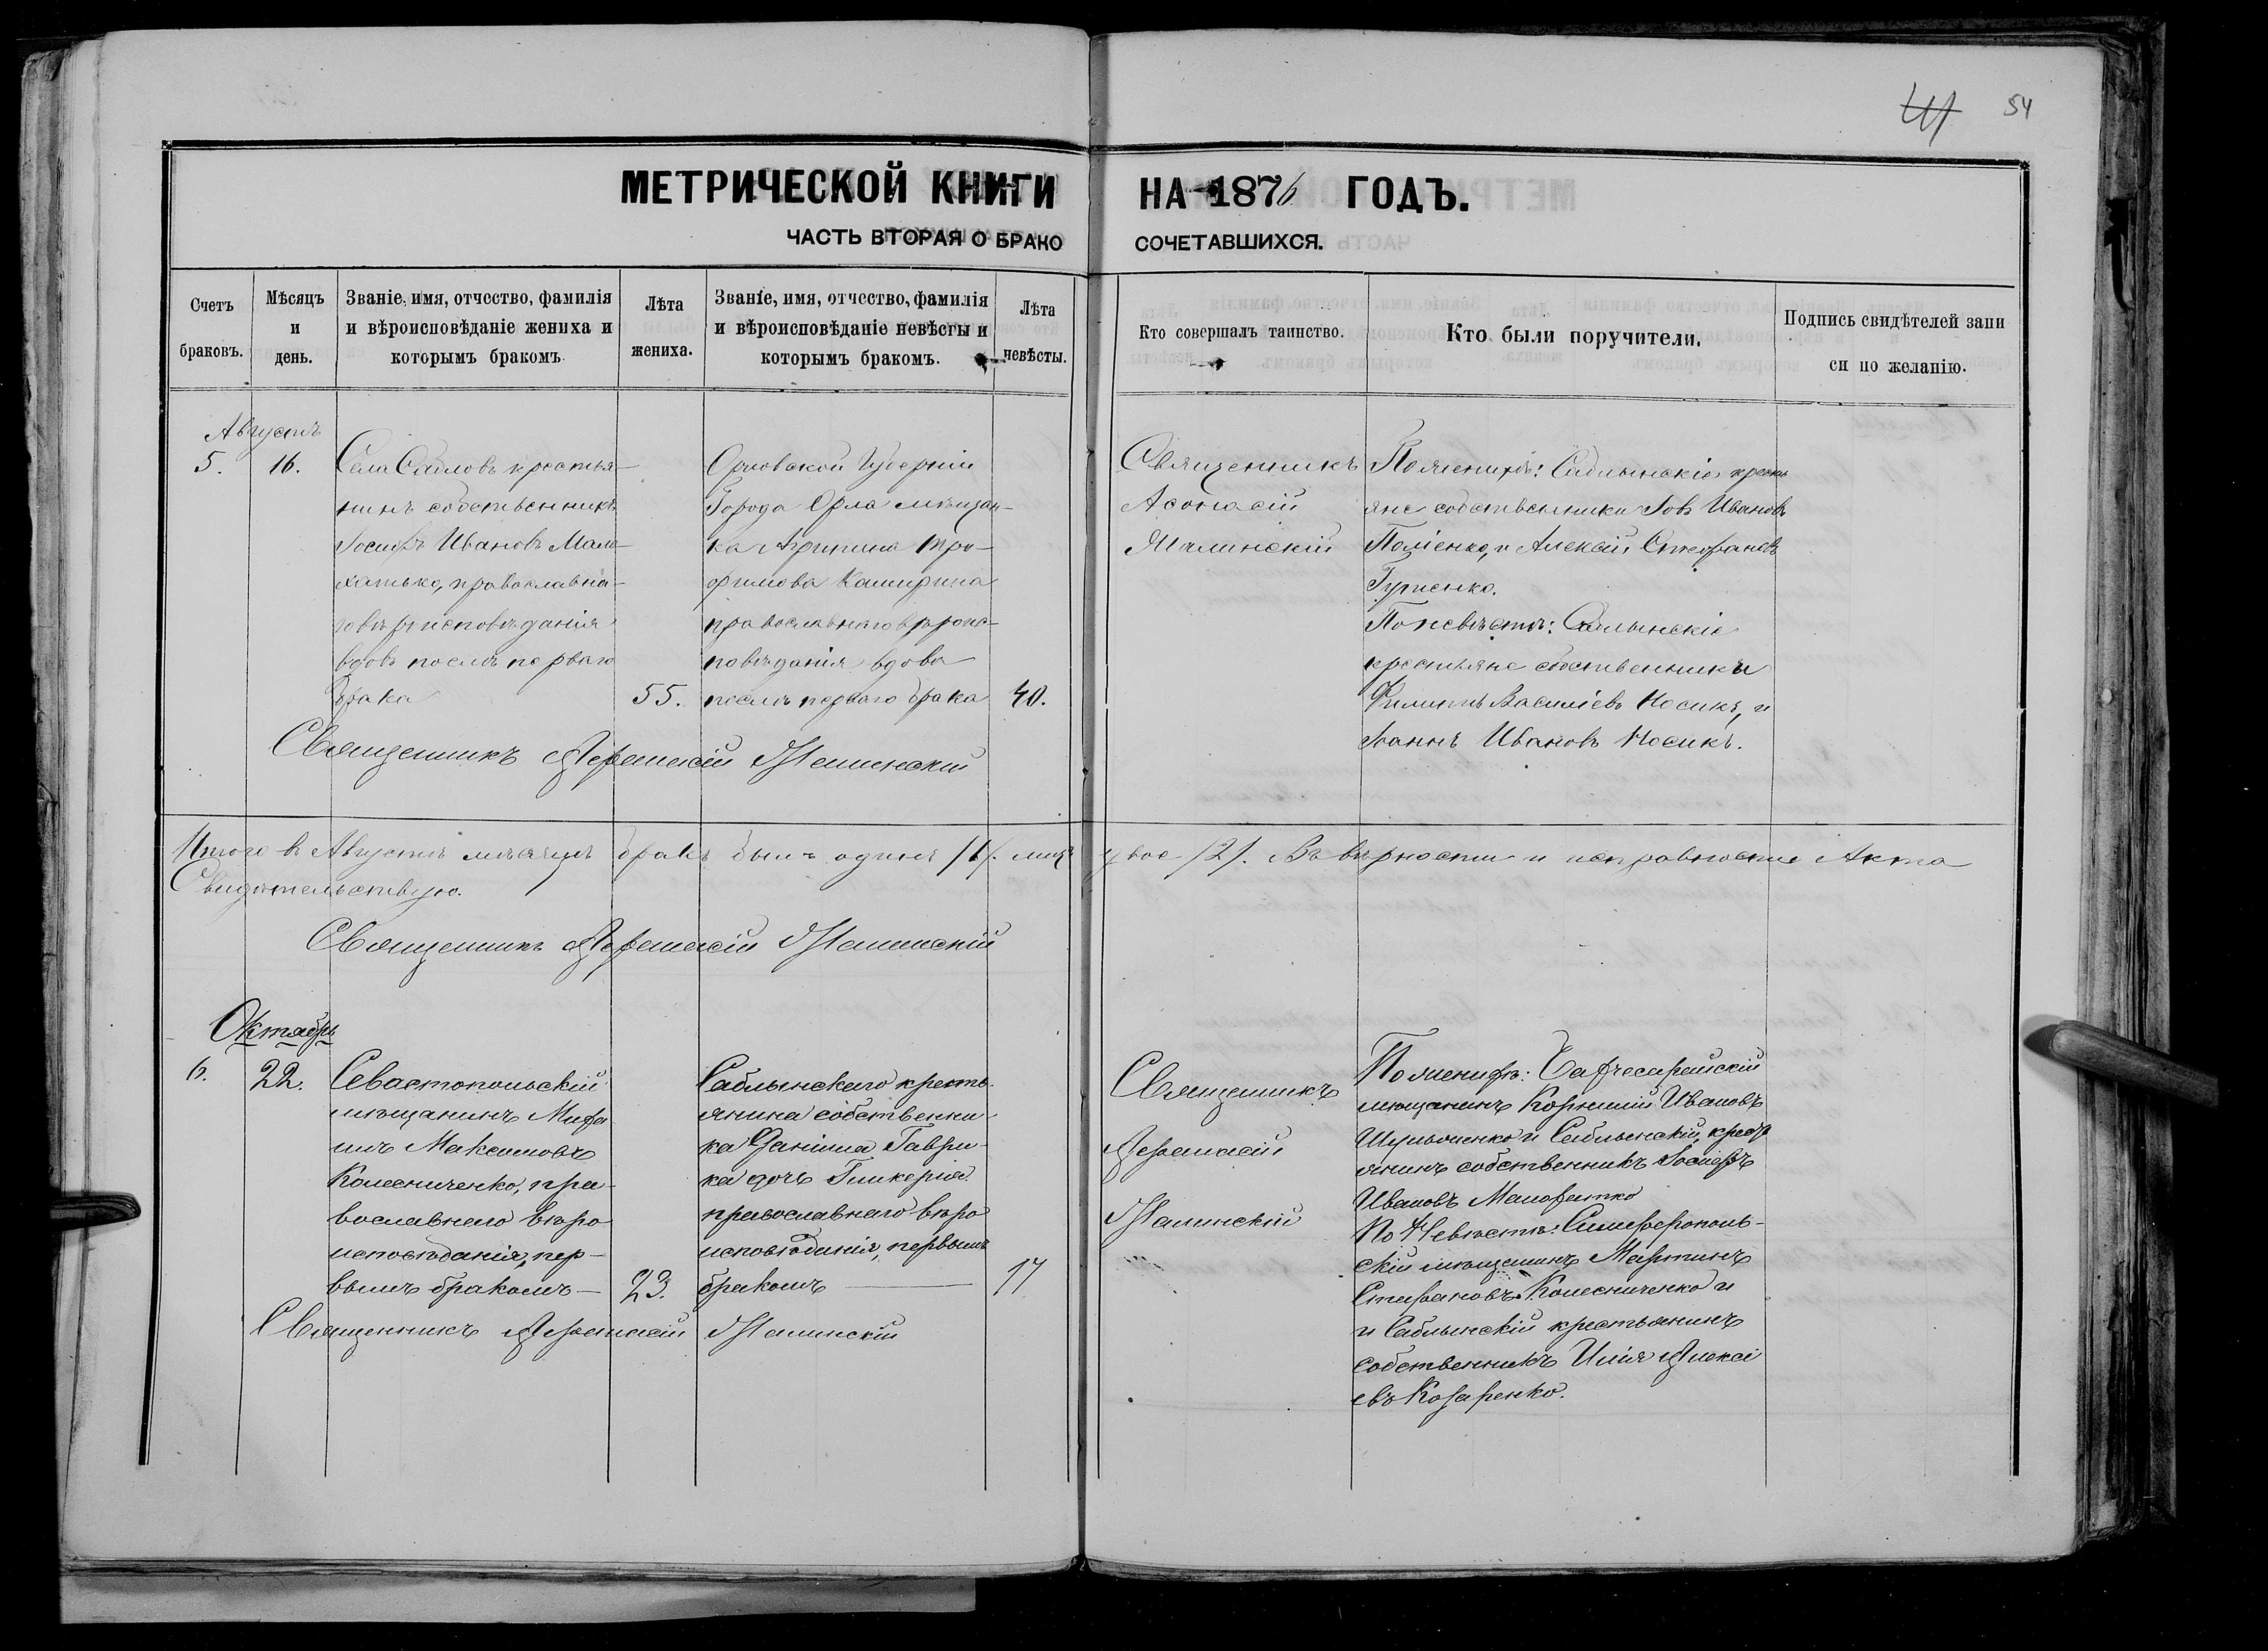 54
МЕТРИЧЕСКОЙ КНИГИ НА 1876 ГОДЪ.
ЧАСТЬ ВТОРАЯ О БРАКО СОЧЕТАВШИХСЯ.
Счетъ браковъ.
Мѣсяцъ и день.
Званіе, имя, отчество, фамилія
и вѣроисповѣданіе жениха и
которымъ бракомъ.
Лѣта
жениха.
Званіе, имя, отчество, фамилія
и вѣроисповѣданіе невѣсты и
которымъ бракомъ.
Лѣта
невѣсты.
Кто совершалъ таинство.
Кто были поручители.
Подпись свидѣтелей запи
си по желанію.
Августъ
5.
16.
Села Сабловъ крестья-
нинъ собственникъ
Іосифъ Ивановъ Мало-
хатько, православна-
го вѣроисповѣданія
вдовъ послѣ перваго
брака
55.
Орловской Губерніи
Города Орла мѣщан-
ка Агрипина Тро-
фимова Каширина
православнаго вѣроис-
повѣданія вдова
послѣ перваго брака
40.
Священникъ
Асонасій
Малинскій
По женихѣ: Саблынскіе кресть
яне собственники Іовъ Ивановъ
и Алексій Стефановъ
Гуриенко.
По невѣстѣ: Саблынскіе
крестьяне собственники
Филиппъ Васильевъ Носикъ, и
Іоаннъ Ивановъ Носикъ.
Священникъ Афанасій Малинскій
Итого въ Августѣ мѣсяцѣ бракъ былъ одинъ /1/. лицъ двое /2/. Въ вѣрности и исправности Акта
Свидѣтельствую.
Священникъ Афанасій Малинскій
Октябрь
6.
22.
Севастопольскій
мѣщанинъ Миха
илъ Максимовъ
Колесниченко, пра-
вославнаго вѣро
исповѣданія, пер-
вымъ бракомъ —
23.
Саблынскаго кресть-
янина собственни-
ка Даніила Гаври-
ка дочь Гликерія
православнаго вѣро
исповѣданія, первымъ
бракомъ —
17
Священникъ
Афанасій
Малинскій
По женихѣ: Бахчесарайскій
мѣщанинъ Корнилій Ивановъ
и Саблынскій кресть
янинъ собственникъ Іосифъ
Ивановъ Малохатко
По Невѣстѣ: Симферополь-
скій мѣщанинъ Мартинъ
Стефановъ Колесниченко и
и Саблынскій крестьянинъ
собственникъ Илія Алексі
евъ Козаренко.
Священникъ Афанасій Малинскій